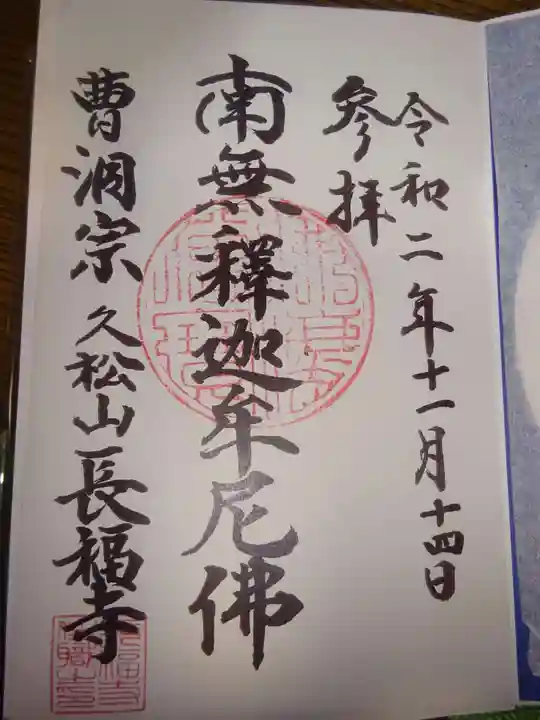 令和二年十一月十四日
参拝
南無釋迦牟尼佛
曹洞宗 久松山長福寺